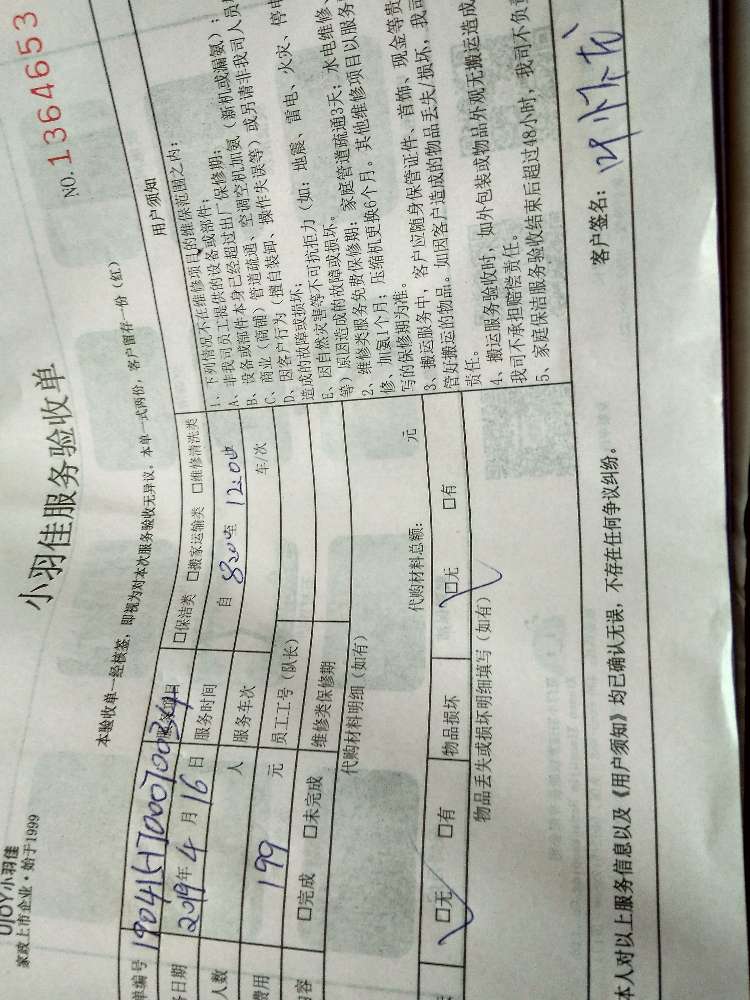 UJOY小羽佳
家政上市企业·始于1999
小羽佳服务验收单
NO. 1364653
本验收单一经核签，即视为对本次服务验收无异议。本单一式两份，客户留存一份（红）
单编号
服务项目 □保洁类 □搬家运输类 □维修清洗类
务日期 2019年 4 月 16 日 服务时间 自 8:20 至 12:00
人数 人 服务车次 车/次
费用 199 元 员工工号（队长）
内容 □完成 □未完成 维修类保修期
代购材料明细（如有）
代购材料总额： 元
□无 □有 物品损坏 □无 □有
物品丢失或损坏明细填写（如有）
用户须知
1、下列情况不在维修项目的维保范围之内：
A、非我司员工提供的设备或部件；
B、设备或部件本身已经超过出厂保修期；
C、商业（商铺）管道疏通、空调空机加氨（新机或漏氨）；
D、因客户行为（擅自装卸、操作失误等）或另请非我司人员
造成的故障或损坏；
E、因自然灾害等不可抗拒力（如：地震、雷电、火灾、停电
等）原因造成的故障或损坏。
2、维修类服务免费保修期：家庭管道疏通3天；水电维修、
修、加氨1个月；压缩机更换6个月。其他维修项目以服务
写的保修期为准。
3、搬运服务中，客户应随身保管证件、首饰、现金等贵
管好搬运的物品。如因客户造成的物品丢失/损坏，我司
责任。
4、搬运服务验收时，如外包装或物品外观无搬运造成
我司不承担赔偿责任。
5、家庭保洁服务验收结束后超过48小时，我司不负责
本人对以上服务信息以及《用户须知》均已确认无误，不存在任何争议纠纷。
客户签名：